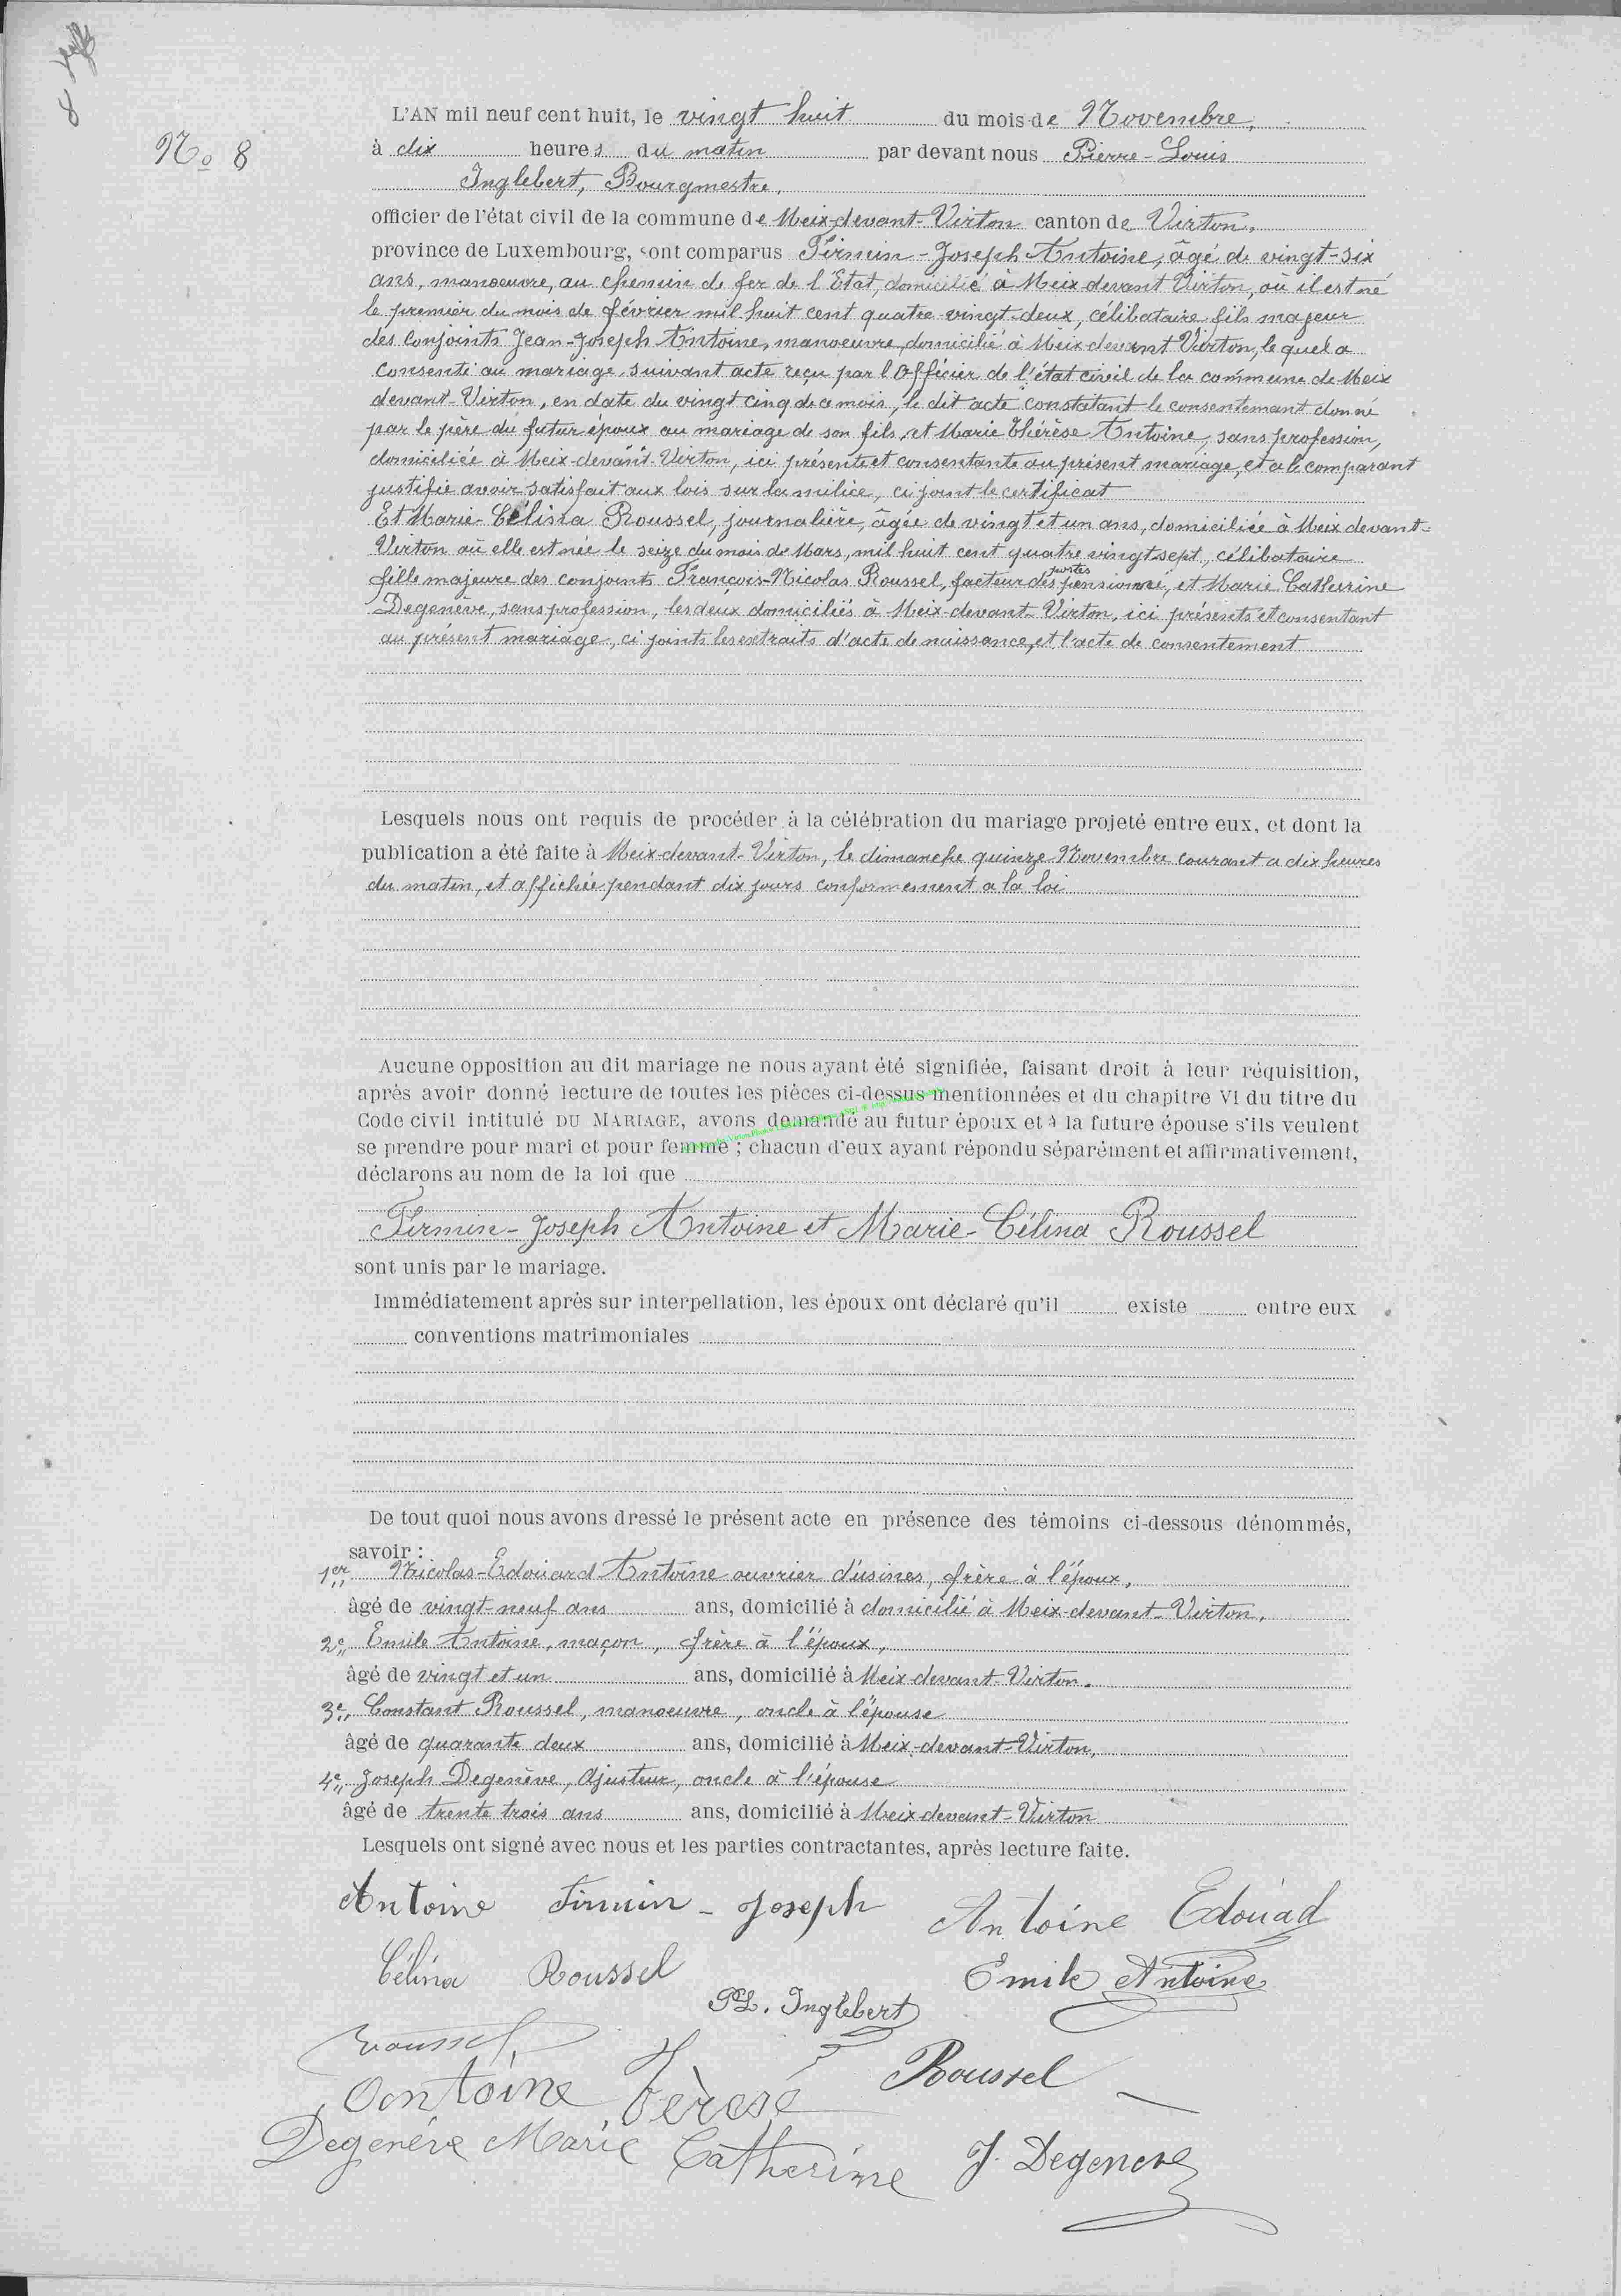 8
No 8
L'AN mil neuf cent huit, le vingt huit du mois de Novembre,
à dix heures du matin par devant nous Pierre-Louis
Inglebert, Bourgmestre,
officier de l'état civil de la commune de Meix-devant-Virton canton de Virton,
province de Luxembourg, sont comparus Firmin-Joseph Antoine, âgé de vingt-six
ans, manoeuvre, au chemin de fer de l'Etat, domicilié à Meix-devant Virton, où il est né
le premier du mois de février mil huit cent quatre-vingt-deux, célibataire fils majeur
des conjoints Jean-Joseph Antoine, manoeuvre, domicilié à Meix devant Virton, le quel a
consenti au mariage suivant acte reçu par l'Officier de l'état civil de la commune de Meix
devant-Virton, en date du vingt cinq de ce mois, le dit acte constatant le consentement donné
par le père du futur époux au mariage de son fils, et Marie Thérèse Antoine, sans profession,
domiciliée à Meix-devant-Virton, ici présente et consentante au présent mariage, et a le comparant
justifié avoir satisfait aux lois sur la milice, ci joint le certificat
Et Marie-Célina Roussel, journalière, âgée de vingt et un ans, domiciliée à Meix devant-
Virton où elle est née le seize du mois de Mars, mil huit cent quatre vingt sept, célibataire
fille majeure des conjoints François-Nicolas Roussel, facteur des postes pensionné, et Marie Catherine
Degenève, sans profession, les deux domiciliés à Meix-devant-Virton, ici présents et consentant
au présent mariage, ci joints les extraits d'acte de naissance, et l'acte de consentement
Lesquels nous ont requis de procéder à la célébration du mariage projeté entre eux, et dont la
publication a été faite à Meix-devant-Virton, le dimanche quinze Novembre courant a dix heures
du matin, et affichée pendant dix jours conformement a la loi
Aucune opposition au dit mariage ne nous ayant été signifiée, faisant droit à leur réquisition,
après avoir donné lecture de toutes les pièces ci-dessus mentionnées et du chapitre VI du titre du
Code civil intitulé DU MARIAGE, avons demandé au futur époux et à la future épouse s'ils veulent
se prendre pour mari et pour femme ; chacun d'eux ayant répondu séparément et affirmativement,
déclarons au nom de la loi que
Firmin-Joseph Antoine et Marie-Célina Roussel
sont unis par le mariage.
Immédiatement après sur interpellation, les époux ont déclaré qu'il existe entre eux
conventions matrimoniales
De tout quoi nous avons dressé le présent acte en présence des témoins ci-dessous dénommés,
savoir :
1er Nicolas-Edouard Antoine ouvrier d'usines, frère à l'époux,
âgé de vingt-neuf ans ans, domicilié à domicilié à Meix-devant-Virton,
2e Emile Antoine, maçon, frère à l'époux,
âgé de vingt et un ans, domicilié à Meix-devant-Virton.
3e Constant Roussel, manoeuvre, oncle à l'épouse
âgé de quarante deux ans, domicilié à Meix-devant-Virton,
4e Joseph Degenève, Ajusteur, oncle à l'épouse
âgé de trente trois ans ans, domicilié à Meix-devant-Virton
Lesquels ont signé avec nous et les parties contractantes, après lecture faite.
Antoine Firmin-Joseph Antoine Edouad
Célina Roussel Emile Antoine
PL. Inglebert
Roussel
Roussel
Antoine Térese
Degenève Marie Catherine J. Degeneve